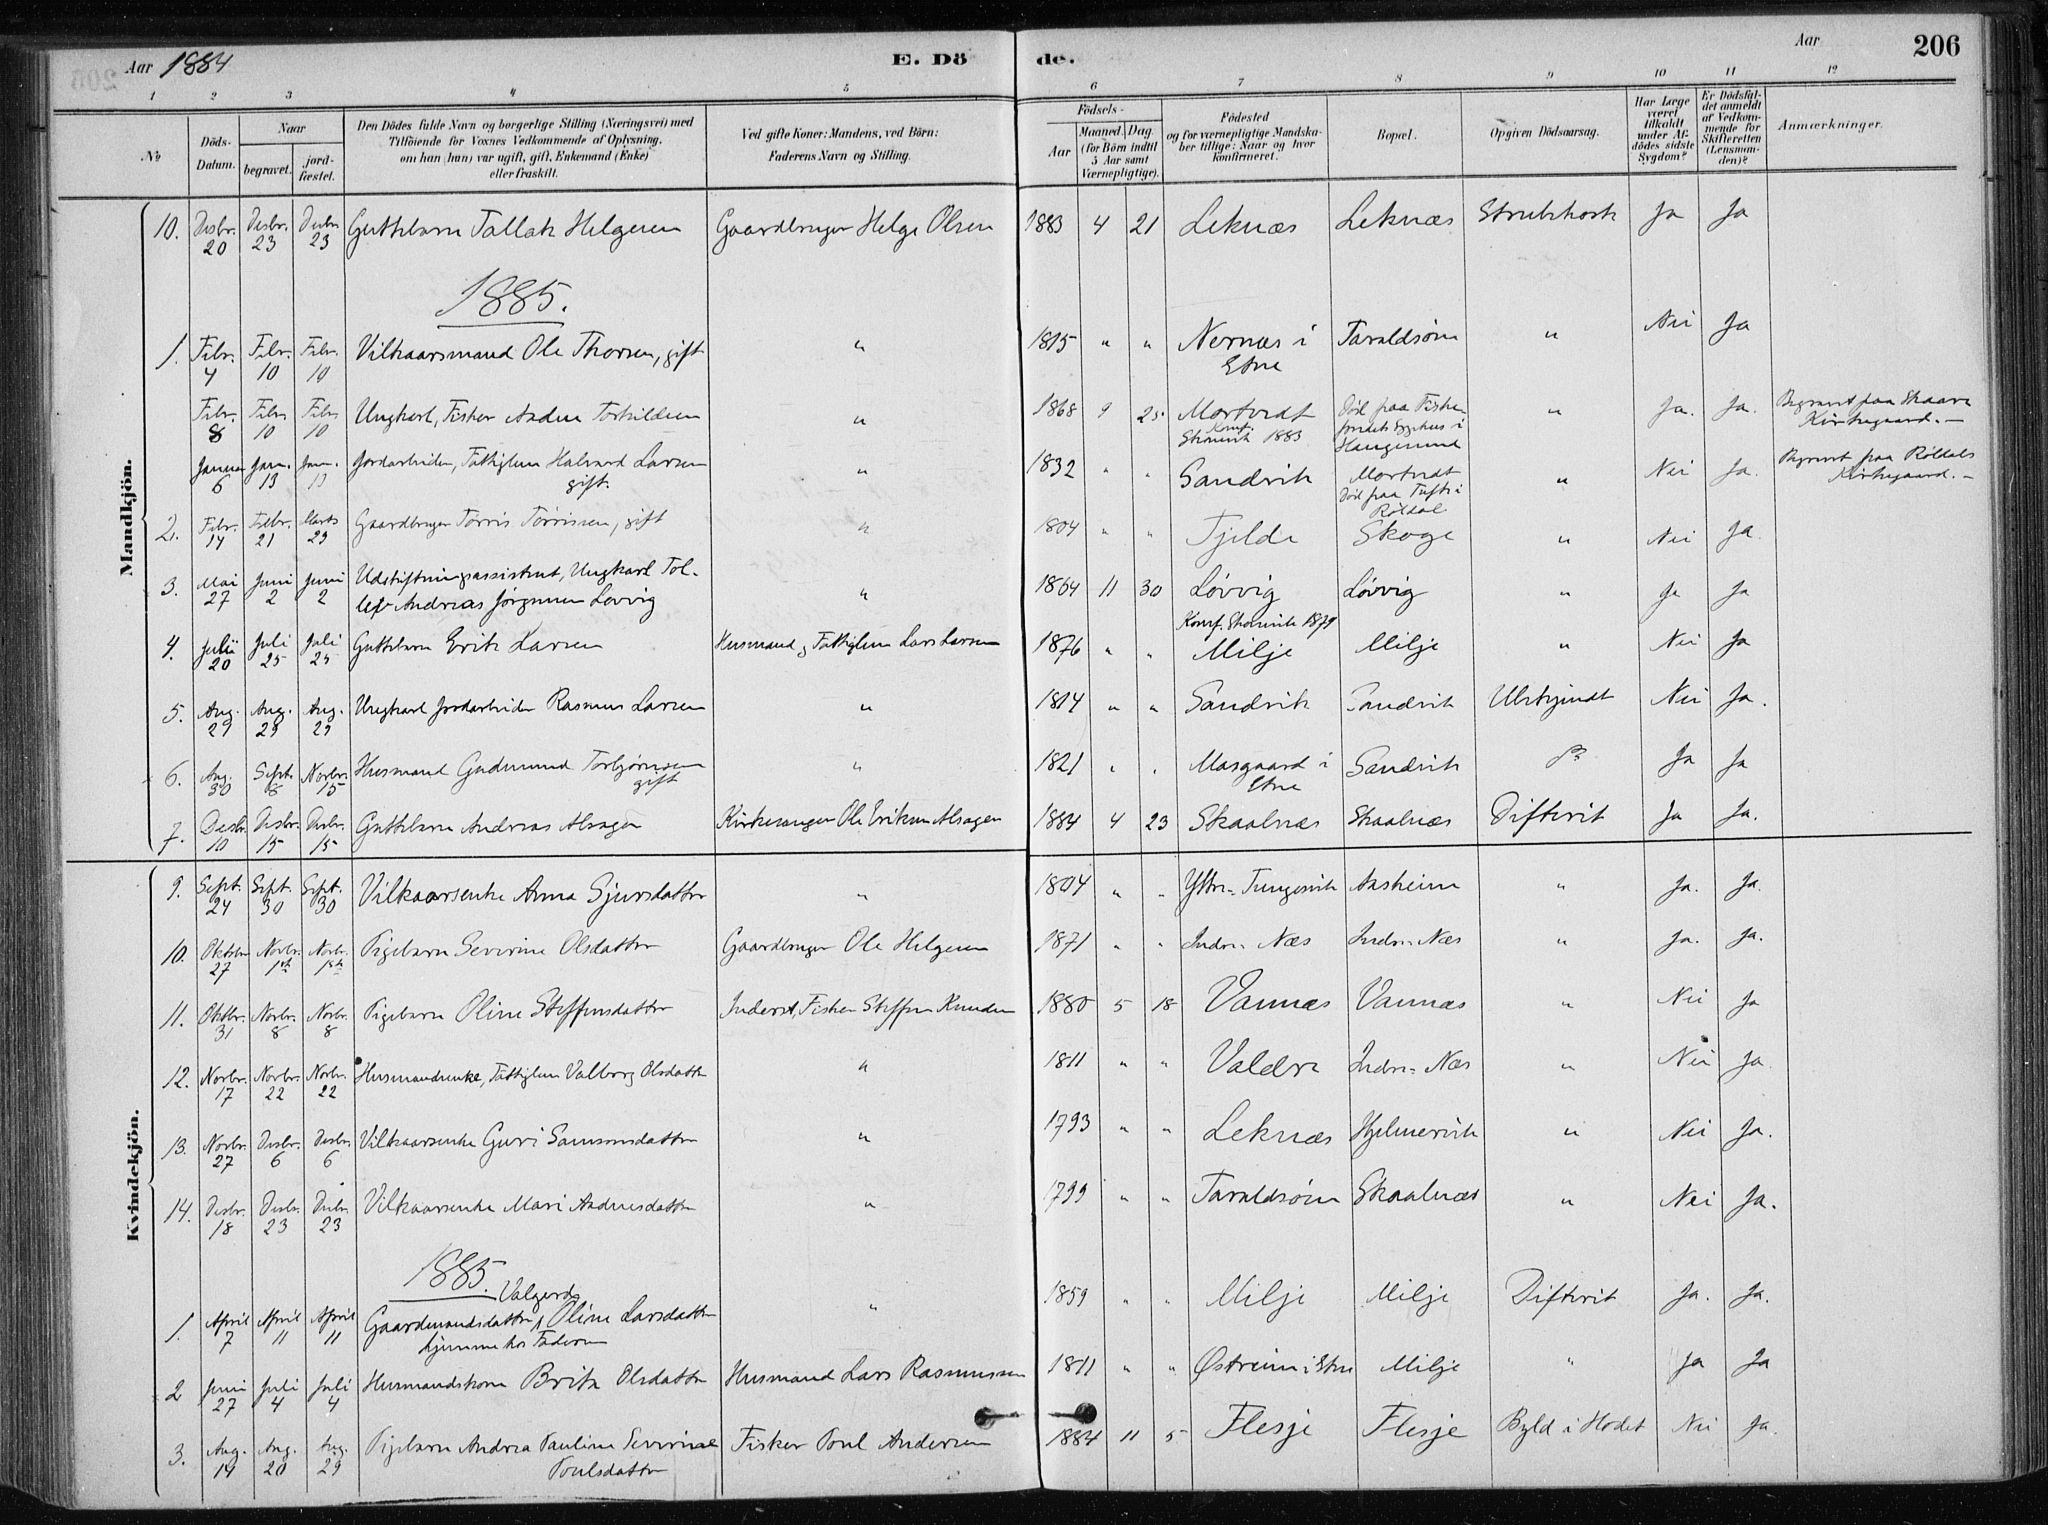 Aar 1884 E. Döde. Aar 206
1 2 3 4 5 6 7 8 9 10 11 12
No Döds-Datum. Naar begravet. jordfæstet. Den Dödes fulde Navn og borgerlige Stilling (Næringsvei) med Tilföiende for Voxnes Vedkommende af Oplysning, om han (hun) var ugift, gift, Enkemand (Enke) eller fraskilt. Ved gifte Koner: Mandens, ved Börn: Faderens Navn og Stilling. Födsels- Aar Maaned. Dag. (for Börn indtil 5 Aar samt Værnepligtige). Födested og for værnepligtige Mandskaber tillige: Naar og hvor konfirmeret. Bopæl. Opgiven Dödsaarsag. Har Læge været tilkaldt under Afdödes sidste Sygdom? Er Dödsfaldet anmeldt af Vedkommende for Skifteretten (Lensmanden)? Anmærkninger.
Mandkjön.
10. Desbr. 20 Desbr. 23 Desbr. 23 Guttebarn Tallak Helgesen Gaardbruger Helge Olsen 1883 4 21 Leknæs Leknæs Strubehoste Ja Ja
1885.
1. Febr. 4 Febr. 10 Febr. 10 Vilkaarsmand Ole Thorsen, gift " 1815 " " Nernæs i Etne Taraldsøen " Nei Ja
Febr. 8 Febr. 10 Febr. 10 Ungkarl, Fisker Andreas Torkildsen " 1868 9 25 Mortvedt Konf. Skonevik 1883 Død paa Fiskeriets Sygehus i Haugesund " Ja. Ja. Begravet paa Skaare Kirkegaard.-
Januar 6 Jan. 13 Jan. 13 Jordarbeider, Fattiglem Halvard Larsen gift. " 1832 " " Sandvik Mortvedt Død paa Tufte i Røldal " Nei Ja. Begravet paa Røldals Kirkegaard.-
2. Febr. 14 Febr. 21 Marts 29 Gaardbruger Tørris Tørrissen, gift " 1804 " " Tjelde Skoge " Nei Ja.
3. Mai 27 Juni 2 Juni 2 Udskiftningsassistent, Ungkarl Tollef Andreas Jørgensen Løvvig " 1864 11 30 Løvvig Konf. Skonevik 1879 Løvvig " Ja Ja
4. Juli 20 Juli 25 Juli 25 Guttebarn Erik Larsen Husmand, Fattiglem Lars Larsen 1876 " " Milje Milje " Nei Ja
5. Aug. 29 Aug. 29 Aug. 29 Ungkarl Jordarbeider Rasmus Larsen " 1814 " " Sandvik Sandvik Ubekjendt Nei Ja.
6. Aug. 30 Sept. 8 Novbr. 15 Husmand Gudmund Torbjørnsen gift " 1821 " " Masgaard i Etne Sandvik Do Ja Ja
7. Desbr. 10 Desbr. 15 Desbr. 15 Guttebarn Andreas Alsager Kirkesanger Ole Eriksen Alsager 1884 4 23 Skaalnæs Skaalnæs Difterit Ja Ja.
Kvindekjön.
9. Sept. 24 Sept. 30 Sept. 30 Vilkaarsenke Anna Sjursdatter " 1804 " " Yttre-Tungesvik Aasheim " Ja. Ja.
10. Oktober 27 Novbr. 1ste Novbr. 1ste Pigebarn Severine Olsdatter Gaardbruger Ole Helgesen 1871 " " Indre-Næs Indre-Næs " Ja. Ja.
11. Oktbr. 31 Novbr. 8 Novbr. 8 Pigebarn Oline Steffensdatter Inderst, Fisker Steffen Knudsen 1880 5 18 Vannæs Vannæs " Nei Ja
12. Novbr. 17 Novbr. 22 Novbr. 22 Husmandsenke, Fattiglem Valborg Olsdatter " 1811 " " Valdre Indre-Næs " Nei Ja.
13. Novbr. 27 Desbr. 6 Desbr. 6 Vilkaarsenke Guri Samsonsdatter " 1793 " " Leknæs Hjelmervik " Nei Ja.
14. Desbr. 18 Desbr. 23 Desbr. 23 Vilkaarsenke Mari Andreasdatter " 1799 " " Taraldsøen Skaalnæs " Nei Ja.
1885.
1. April 7 April 11 April 11 Gaardmandsdatter Valgerd Oline Larsdatter hjemme hos Faderen " 1859 " " Milje Milje Difterit Ja. Ja.
2 Juni 27 Juli 4 Juli 4 Husmandskone Brita Olsdatter Husmand Lars Rasmussen 1811 " " Østreim i Etne Milje " Ja Ja
3. Aug. 14 Aug. 20 Aug. 29 Pigebarn Andrea Pauline Severine Poulsdatter Fisker Poul Andersen 1884 11 5 Flesje Flesje Byld i Hodet Nei Ja.